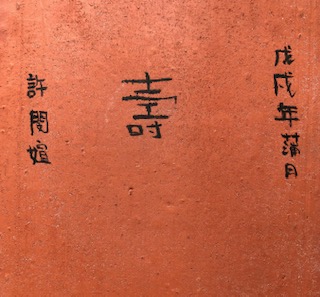 戊戌年蒲月
壽
許閔媗